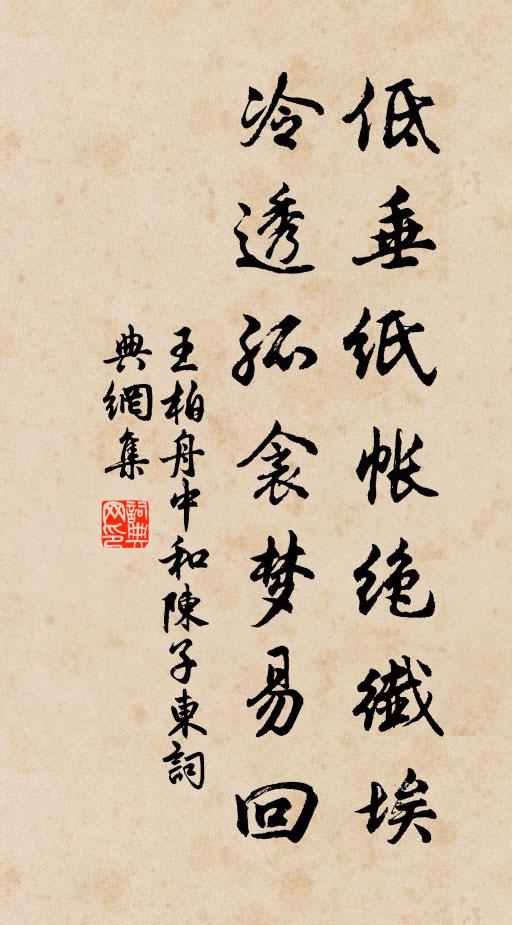 低垂纸帐绝纖埃
冷透孤衾梦易回
王柏舟中和陳子東詞
典網集
詞典網印